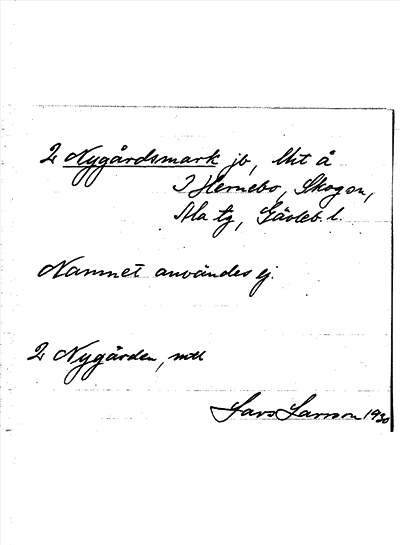 2 Nygårdsmark jb, Utt å
2 Hernebo, Skogen,
Ala tg, Gävleb. l.
Namnet användes ej.
2 Nygården, mtl
Lars Larsson 1930